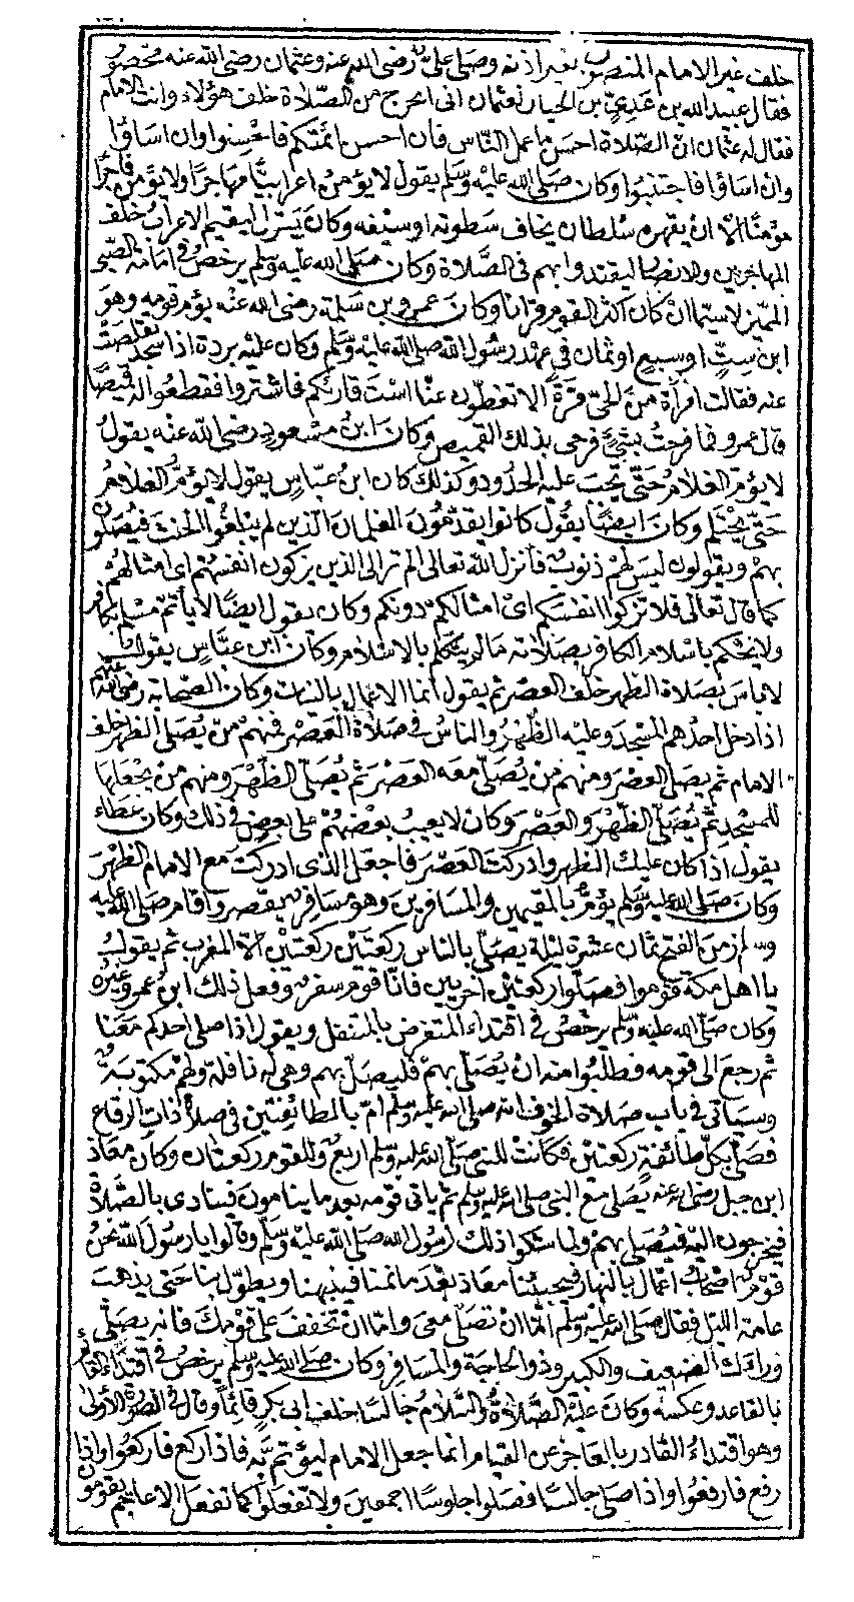 خلف غير الامام المنصوب بغير اذنه وصلى علىّ رضى الله عنه وعثمان رضى الله عنه محصور
فقال عبيد الله بن عَدِىّ بن الخيار لعثمان انى اتحرج من الصّلاة خلف هؤلاء وانت الامام
فقال له عثمان انّ الصّلاة احسن ما عمل النّاس فان احسن ائمتكم فاحسِنوا وان اساؤا
وان اساؤا فاجتنبوا وكان صلى الله عليه وسلم يقول لا يؤمنّ اعرابيًّا مهاجرًا ولا يؤمن فاجرًا
مؤمنًا الّا ان يقهره سُلطان يخاف سَطوته اوسيفه وكان يقيم الاعراب خلف
المهاجرين والانصار ليقتدوا بهم فى الصَّلاة وكان صلى الله عليه وسلم يرخصُ فى امامة الصّبى
المميّز لاسيّما ان كان اكثر القوم قرانا وكان عمرو بن سَلِمة رضى الله عنْه يؤم قومه وهو
ابن سِتٍّ اوسبعٍ اوثمان فى عهْد رسُول الله صلى الله عليه وسلم وكان عليْه بردة اذا سجد تقلصَتْ
عنه فقالت امرأة منَ الحىّ الا تغطّون عنّا اسْتَ قارئكم فاشتروا فقطعُوا له قميصًا
قال عمرو فما فرحتُ بشىْءٍ فرحى بذلك القميص وكان ابنُ مسْعود رضى الله عنه يقولُ
لا يؤمّ الغلامُ حَتّى تجبَ عليه الحدُود وكذلك كان ابنُ عبّاسٍ يقول لا يؤمُّ الغلامُ
حَتّى يحْتلم وكان ايضًا يقُول كانوا يقدّمُونَ الغلمان الّذين لم يبلغُوا الحنثَ فيُصَلون
بهمْ ويقولون ليسَ لهمْ ذنوبٌ فأنزل الله تعالى الم تر الى الذين يزكون انفسهُم اى امثالهُمْ
كما قال تعالى فلا تزكوا انفسَكم اىْ امثالكم دونكم وكان يقول ايضًا لا يأتمّ مسْلم بكافر
ولا يحْكم باسْلام الكافر بصَلاته مالم يتكلم بالاسْلام وكان ابن عبَّاسٍ يقولُ
لا باسَ بصَلاة الظهر خلف العصْر ثم يقول انما الاعمال بالنيات وكان الصّحابة رضى الله عنهم
اذا دخل احدُهم المسْجدَ وعليه الظُّهْرُ والناسُ فى صَلاة العَصْر فمنهمْ منْ يُصَلى الظهر خلف
الامام ثم يصَلى العصْرَ ومنهم مَن يُصَلّى معَه العَصْرَ ثم يُصَلّى الظّهْرَ ومنهم مَنْ يجْعلهَا
للمسْجد ثمّ يُصَلّى الظّهْرَ والعَصْر وكان لا يعيبُ بعْضهُمْ على بعض فى ذلك وكان عطاء
يقول اذا كان عليك الظهر وادركتَ العَصْرَ فاجعل الذى ادركتَ مع الامام الظهرَ
وكان صلى الله عليه وسلم يؤمُّ بالمقيمين والمسافرين وهو مسَافِر يقصر واقام صَلى الله عليه
وسلم زمن الفتح ثمان عشرة ليلة يصَلى بالناس ركعتَيْن ركعتيْن الّا المغرب ثم يقولُ
يا اهل مكة قوموا فصَلّوا ركعتيْن اخريين فانّا قوم سفرٌ وفعل ذلك ابنُ عمر وغيرُه
وكان صَلّى الله عليه وسلم يرخصُ فى اقتداء المتفرض بالمتنفل ويقول اذا صلى احدكم مَعَنا
ثم رجعَ الى قومه فطلبُوا منه انْ يُصَلّى بهمْ فليصَلّ بهم وهى له نافلة ولهمْ مكتوبَة
وسيأتى فى باب صَلاة الخوف انه صلى الله عليه وسلم امّ بالطائفتين فى صلاة ذات الرقاع
فصَلّى بكلّ طائفةٍ ركعتيْن فكانتْ للنبى صَلى الله عليه وسلم اربعٌ وللقوم ركعتان وكان معَاذ
ابن جبل رضى الله عنه يصَلى معَ النبى صلى الله عليه وسلم ثم يأتى قومه بعد ما ينامون فينادى بالصَّلاة
فيخرجون اليه فيُصَلى بهمْ ولما شكوا ذلك لرسُول الله صَلّى الله عليْه وسَلّم وقالوا يارسُول الله نحنُ
قومٌ اصْحابُ اعمال بالنهار فيجيئنا معَاذ بعْدَ ما نمنا فينبهنا ويطوّل بنا حَتى يذهبَ
عامة الليْل فقال صلى الله عليْه وسَلم امّا انْ تصَلّى معى وامّا ان تخففَ على قوْمك فانه يصَلّى
وراءك الضعيف والكبير وذو الحاجة والمسَافر وكان صلى الله عليه وسلم يرخصُ فى اقتداء القائم
بالقاعد وعكسه وكان عليْه الصّلاةُ والسّلامُ جَالسًا خلف ابى بكرٍ قائمًا وقال فى الصورة الأولى
وهو اقتداءُ القادر بالعَاجز عن القيَام انما جعل الامام ليؤتم به فاذا ركع فاركعُوا واذا
رفع فارفعُوا واذا صلى جالسًا فصَلوا جلوسًا اجمعين ولا تفعَلوا كما تفعل الاعاجم يقومون